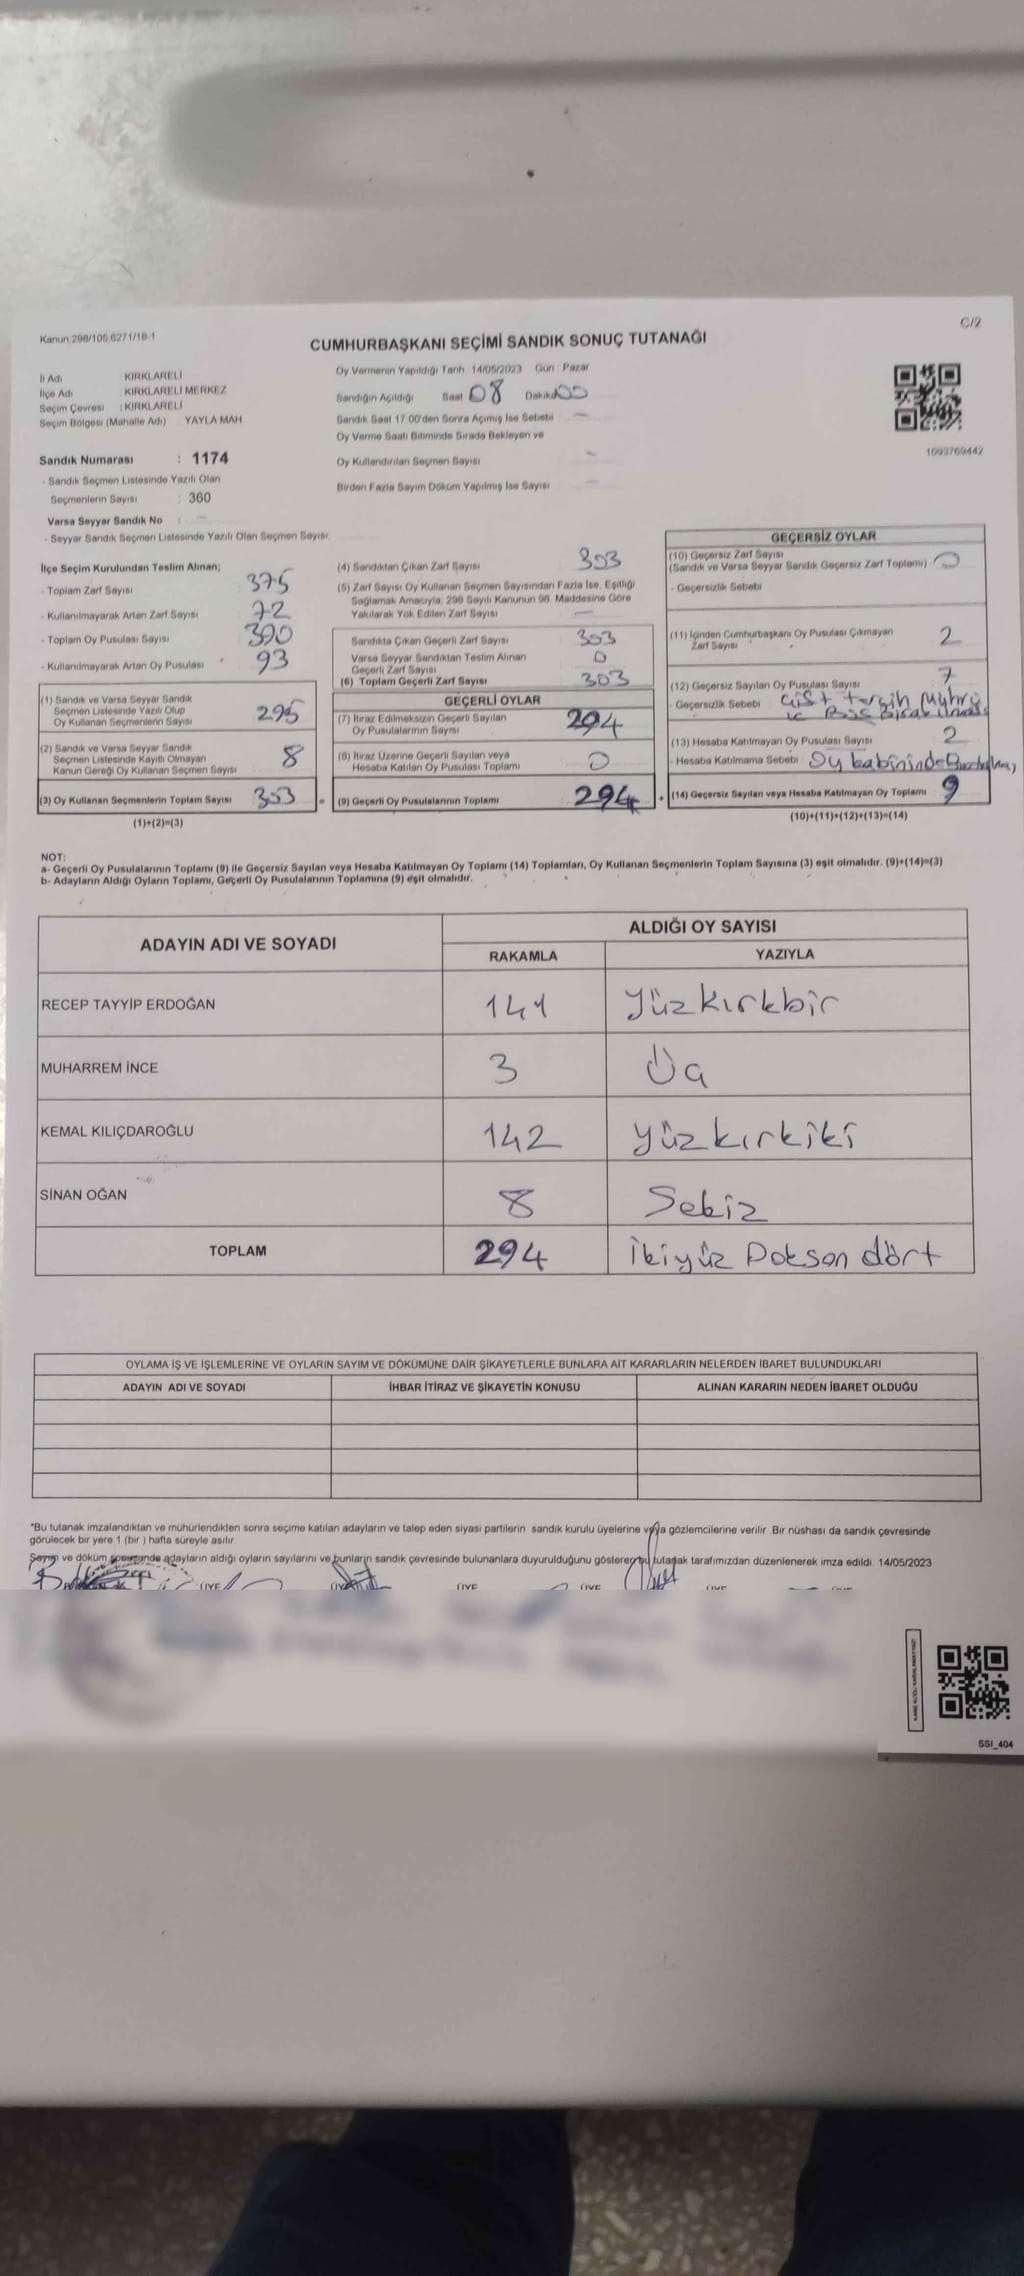 C/2
Kanun:298/105;6271/18-1
CUMHURBAŞKANI SEÇİMİ SANDIK SONUÇ TUTANAĞI
İl Adı KIRKLARELİ
İlçe Adı KIRKLARELİ MERKEZ
Seçim Çevresi : KIRKLARELİ
Seçim Bölgesi (Mahalle Adı) YAYLA MAH
Sandık Numarası : 1174
- Sandık Seçmen Listesinde Yazılı Olan
Seçmenlerin Sayısı : 360
Varsa Seyyar Sandık No : -
- Seyyar Sandık Seçmen Listesinde Yazılı Olan Seçmen Sayısı
Oy Vermenin Yapıldığı Tarih 14/05/2023 Gün Pazar
Sandığın Açıldığı Saat 08 Dakika 00
Sandık Saat 17.00'den Sonra Açımış İse Sebebi -
Oy Verme Saati Bitiminde Sırada Bekleyen ve
Oy Kullandırılan Seçmen Sayısı -
Birden Fazla Sayım Döküm Yapılmış İse Sayısı -
1093769442
İlçe Seçim Kurulundan Teslim Alınan;
- Toplam Zarf Sayısı 375
- Kullanılmayarak Artan Zarf Sayısı 72
- Toplam Oy Pusulası Sayısı 390
- Kullanılmayarak Artan Oy Pusulası 93
(1) Sandık ve Varsa Seyyar Sandık
Seçmen Listesinde Yazılı Olup
Oy Kullanan Seçmenlerin Sayısı 295
(2) Sandık ve Varsa Seyyar Sandık
Seçmen Listesinde Kayıtlı Olmayan
Kanun Gereği Oy Kullanan Seçmen Sayısı 8
(3) Oy Kullanan Seçmenlerin Toplam Sayısı 303
(1)+(2)=(3)
(4) Sandıktan Çıkan Zarf Sayısı 303
(5) Zarf Sayısı Oy Kullanan Seçmen Sayısından Fazla İse, Eşitliği
Sağlamak Amacıyla, 298 Sayılı Kanunun 98. Maddesine Göre
Yakılarak Yok Edilen Zarf Sayısı -
Sandıkta Çıkan Geçerli Zarf Sayısı 303
Varsa Seyyar Sandıktan Teslim Alınan
Geçerli Zarf Sayısı 0
(6) Toplam Geçerli Zarf Sayısı 303
GEÇERLİ OYLAR
(7) İtiraz Edilmeksizin Geçerli Sayılan
Oy Pusulalarının Sayısı 294
(8) İtiraz Üzerine Geçerli Sayılan veya
Hesaba Katılan Oy Pusulası Toplamı 0
= (9) Geçerli Oy Pusulalarının Toplamı 294
GEÇERSİZ OYLAR
(10) Geçersiz Zarf Sayısı
(Sandık ve Varsa Seyyar Sandık Geçersiz Zarf Toplamı) 0
- Geçersizlik Sebebi
(11) İçinden Cumhurbaşkanı Oy Pusulası Çıkmayan
Zarf Sayısı 2
(12) Geçersiz Sayılan Oy Pusulası Sayısı 7
- Geçersizlik Sebebi Çift tercih Mührü
(13) Hesaba Katılmayan Oy Pusulası Sayısı 2
- Hesaba Katılmama Sebebi Oy kabininde
+ (14) Geçersiz Sayılan veya Hesaba Katılmayan Oy Toplamı 9
(10)+(11)+(12)+(13)=(14)
NOT:
a- Geçerli Oy Pusulalarının Toplamı (9) ile Geçersiz Sayılan veya Hesaba Katılmayan Oy Toplamı (14) Toplamları, Oy Kullanan Seçmenlerin Toplam Sayısına (3) eşit olmalıdır. (9)+(14)=(3)
b- Adayların Aldığı Oyların Toplamı, Geçerli Oy Pusulalarının Toplamına (9) eşit olmalıdır.
ADAYIN ADI VE SOYADI ALDIĞI OY SAYISI
RAKAMLA YAZIYLA
RECEP TAYYİP ERDOĞAN 141 Yüzkırkbir
MUHARREM İNCE 3 Üç
KEMAL KILIÇDAROĞLU 142 Yüzkırkiki
SİNAN OĞAN 8 Sekiz
TOPLAM 294 İkiyüz Doksan dört
OYLAMA İŞ VE İŞLEMLERİNE VE OYLARIN SAYIM VE DÖKÜMÜNE DAİR ŞİKAYETLERLE BUNLARA AİT KARARLARIN NELERDEN İBARET BULUNDUKLARI
ADAYIN ADI VE SOYADI İHBAR İTİRAZ VE ŞİKAYETİN KONUSU ALINAN KARARIN NEDEN İBARET OLDUĞU
*Bu tutanak imzalandıktan ve mühürlendikten sonra seçime katılan adayların ve talep eden siyasi partilerin sandık kurulu üyelerine veya gözlemcilerine verilir. Bir nüshası da sandık çevresinde
görülecek bir yere 1 (bir) hafta süreyle asılır.
Sayım ve döküm sonucunda adayların aldığı oyların sayılarını ve bunların sandık çevresinde bulunanlara duyurulduğunu gösteren bu tutanak tarafımızdan düzenlenerek imza edildi. 14/05/2023
ÜYE ÜYE ÜYE ÜYE
SSI_404